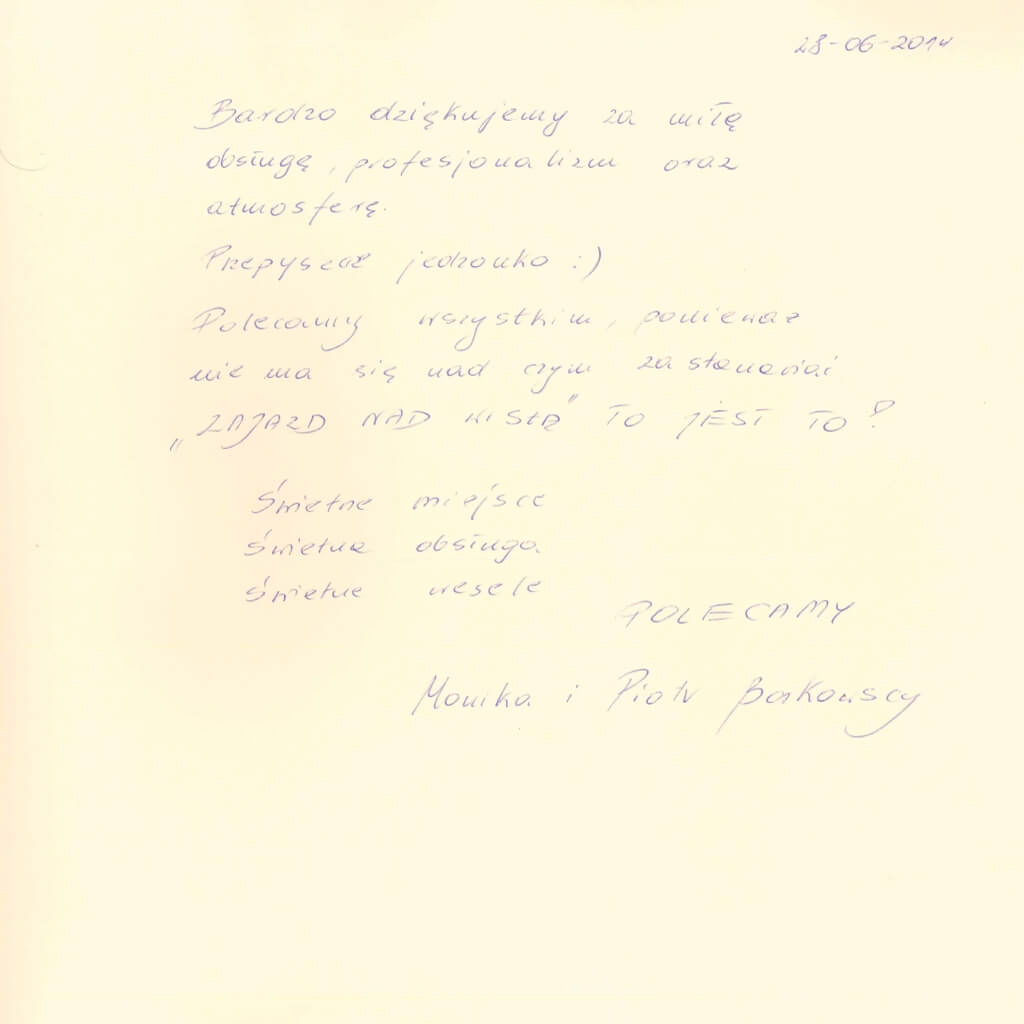 28-06-2014
Bardzo dziękujemy za miłą
obsługę, profesjonalizm oraz
atmosferę.
Przepyszne jedzonko :)
Polecamy wszystkim, ponieważ
nie ma się nad czym zastanawiać
„ZAJAZD NAD WISŁĄ” TO JEST TO!
Świetne miejsce
Świetna obsługa
Świetne wesele
POLECAMY
Monika i Piotr